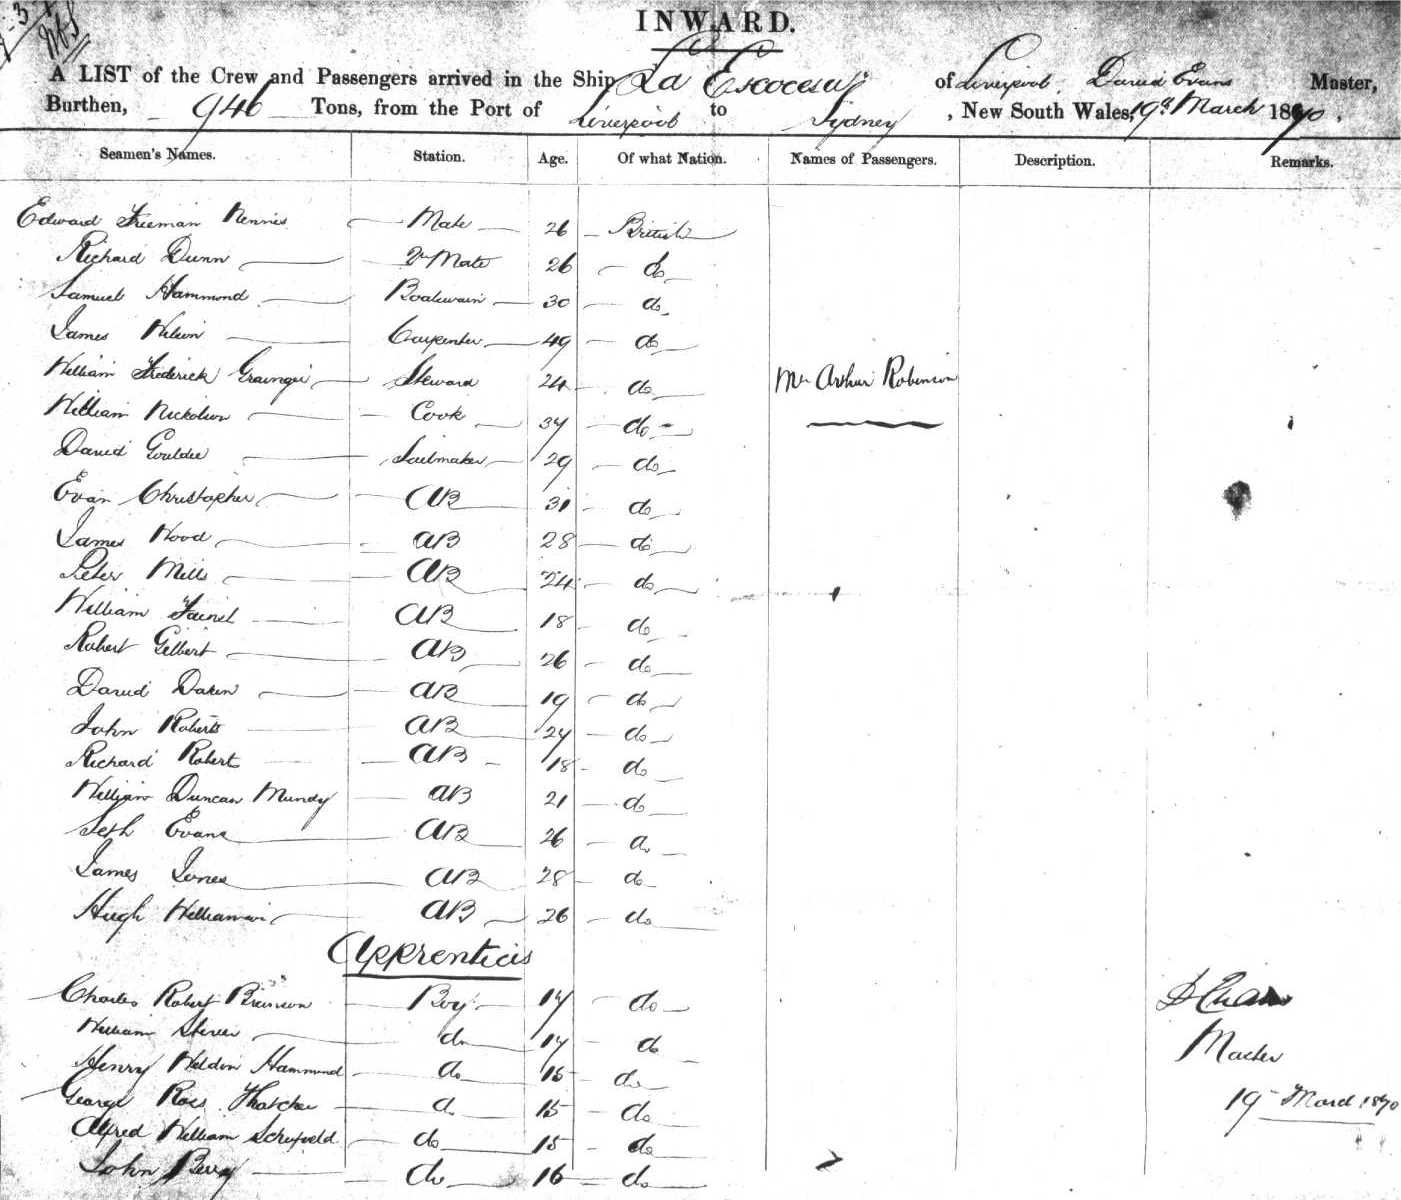 INWARD.
A LIST of the Crew and Passengers arrived in the Ship La Escocesa of Liverpool, David Evans Master,
Burthen, 946 Tons, from the Port of Liverpool to Sydney, New South Wales, 19th March 1870.
Seamen's Names. Station. Age. Of what Nation. Names of Passengers. Description. Remarks.
Edward Freeman Mate 26 British
Richard Dunn 2nd Mate 26 do
Samuel Hammond Boatswain 30 do
James Wilson Carpenter 49 do
William Frederick Grainger Steward 24 do Mr Arthur Robinson
William Nicholson Cook 37 do
David Sailmaker 29 do
Evan Christopher AB 31 do
James Wood AB 28 do
Peter Mills AB 24 do
William AB 18 do
Robert Gilbert AB 26 do
David Daken AB 19 do
John Roberts AB 27 do
Richard Roberts AB 18 do
William Duncan Mundy AB 21 do
Seth Evans AB 26 do
James Jones AB 28 do
Hugh Williamson AB 26 do
Apprentices
Charles Robert Boy 17 do D Evans
William do 17 do Master
Henry Hammond do 15 do
George Ross Thatcher do 15 do 19 March 1870
Alfred William Schofield do 15 do
John Berry do 16 do